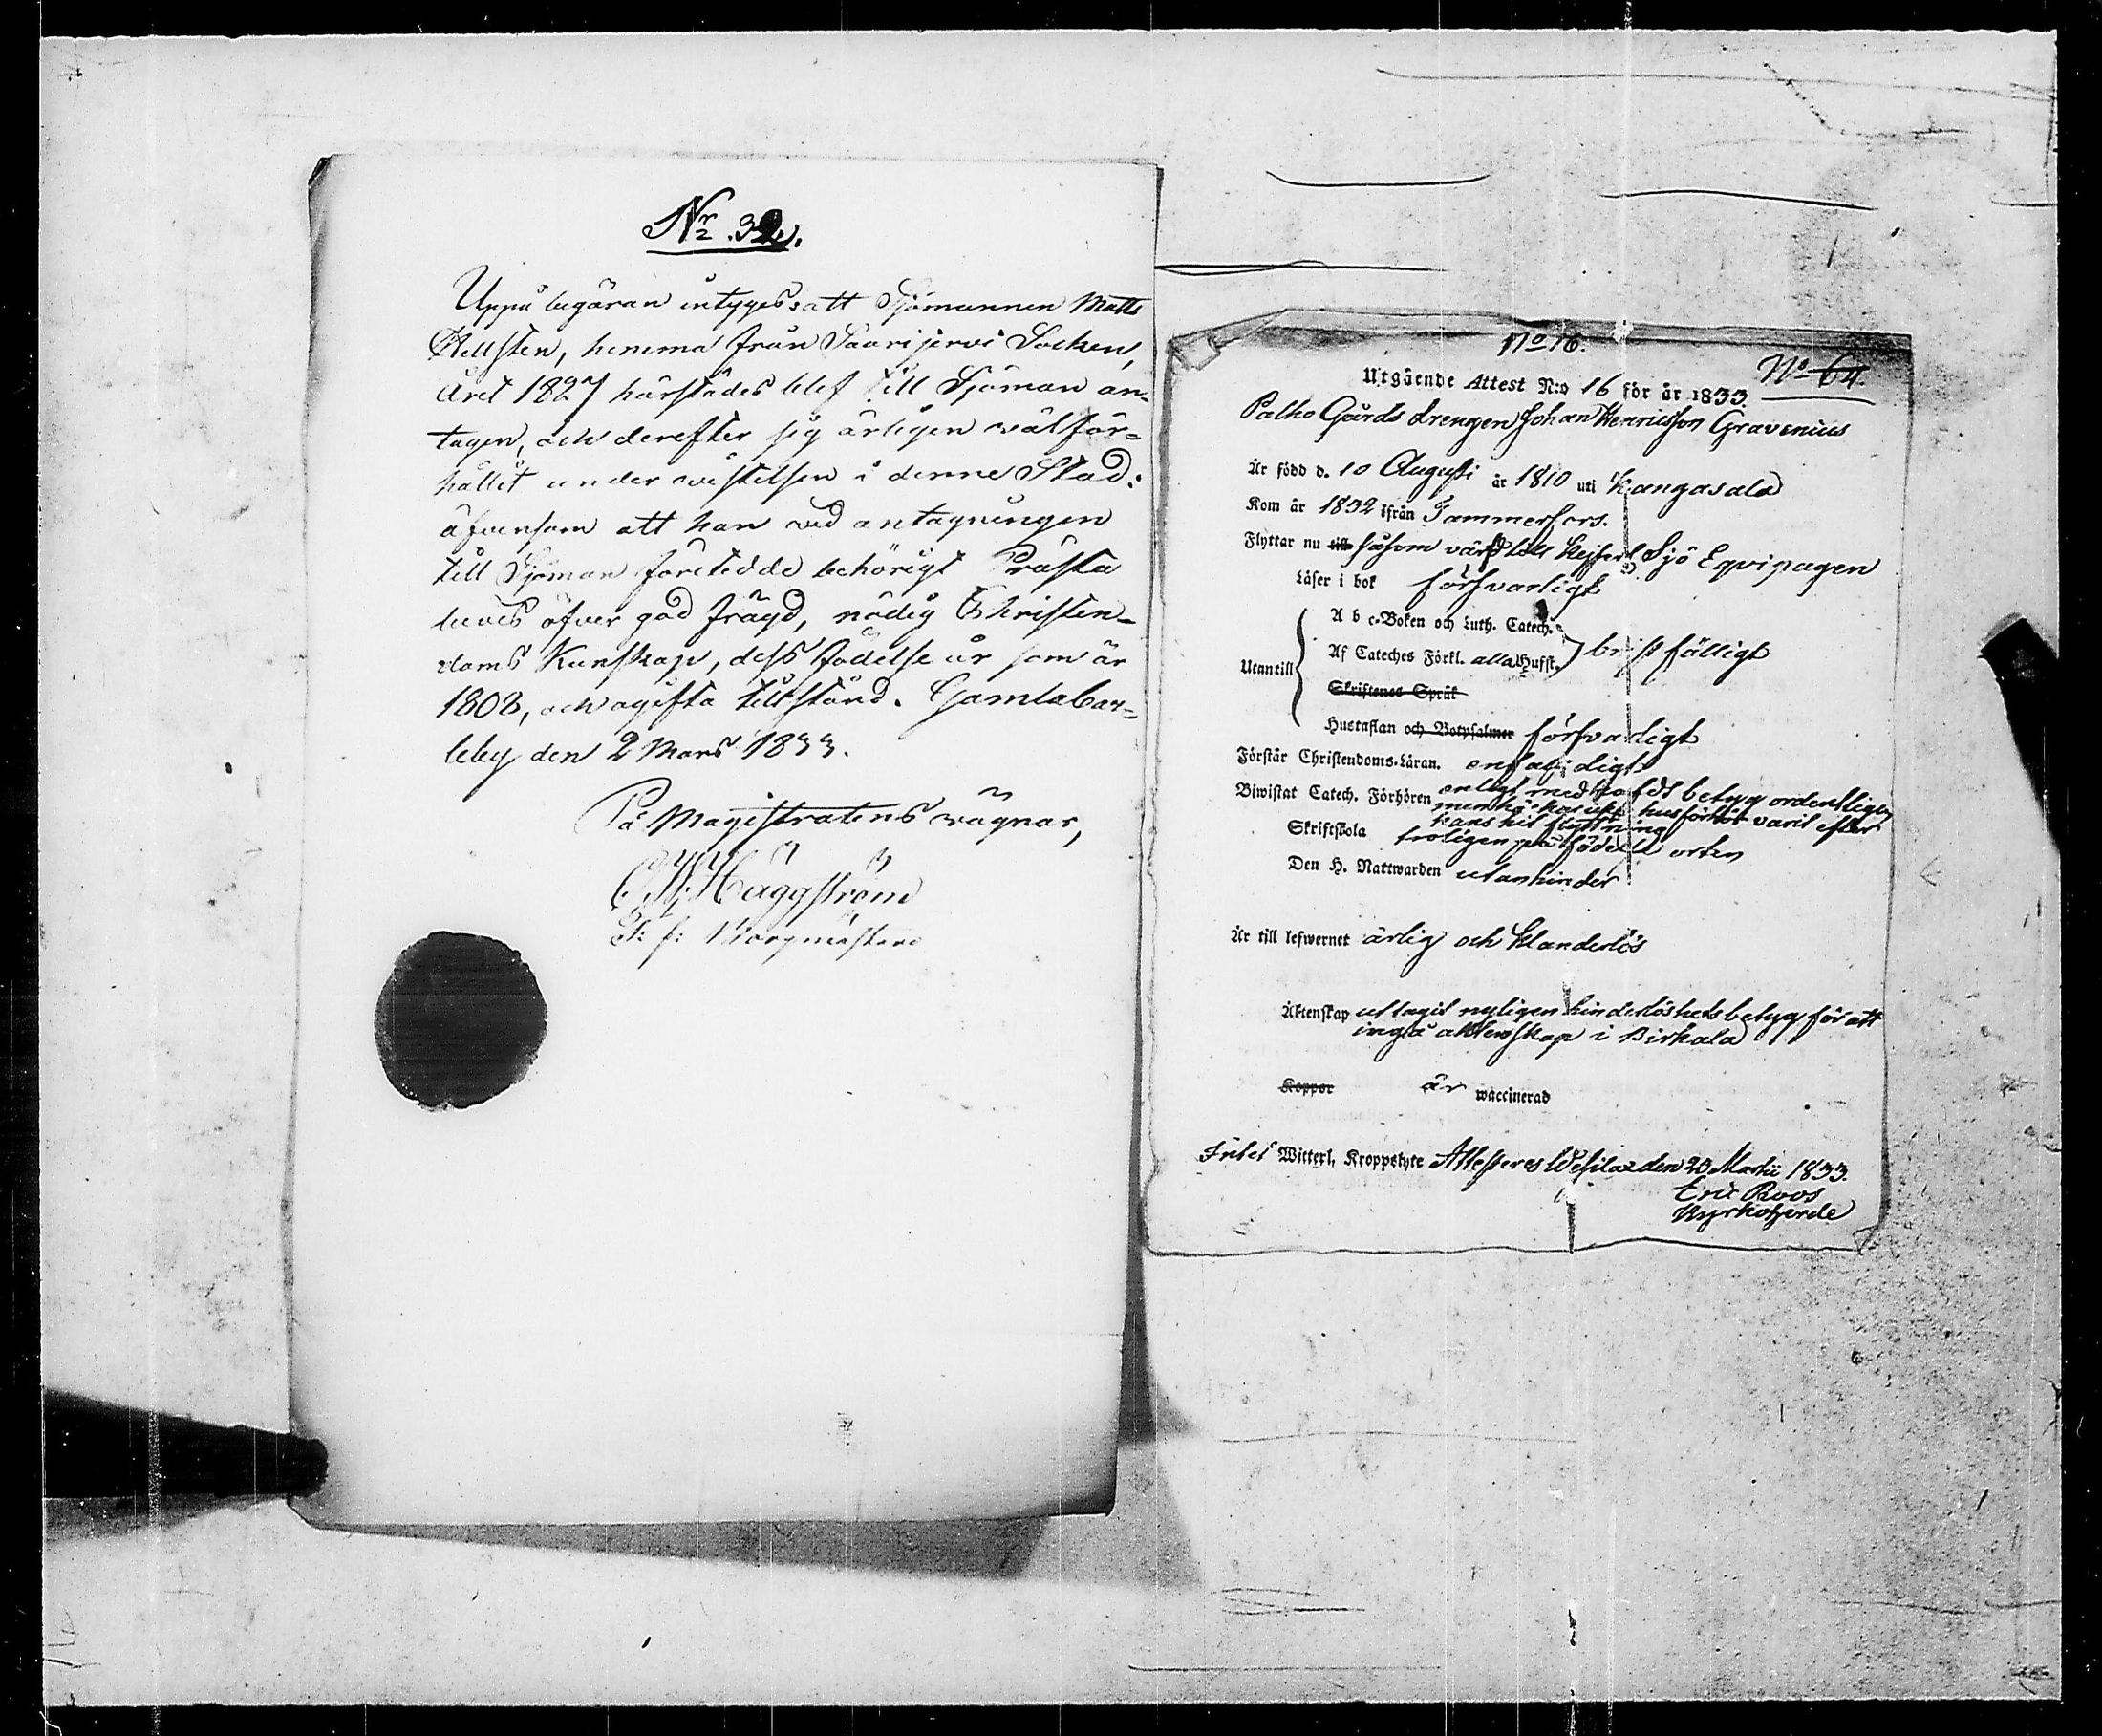 Nr 32.
Uppå begäran intygas att Sjömannen Matts
Hellsten, hemma från Saarijervi Socken,
året 1827 härstädes blef till Sjöman an-
tagen, och derefter sig ärligen väl för-
hållit under vistelsen i denne Stad:
äfvensom att han vid antagningen
till Sjöman företedde behörigt Prästa
bevis öfver god frägd, nödig Christen-
doms Kunskap, dess födelse år som är
1808, och ogifta tillstånd. Gamlacar-
leby den 2 Mars 1833.
På Magistratens vägnar,
Häggström
T: f: Borgmästare
No 16.
No 64.
Utgående Attest N:o 16 för år 1833.
Palho Gårds drengen Johan Henricsson Gravenius
Är född d. 10 Augusti år 1810 uti Kangasala
Kom år 1832 ifrån Tammerfors.
Flyttar nu till såsom värfd till Kejserl. Sjö Eqvipagen
Läser i bok försvarligt
A b c-Boken och Luth. Catech.
Utantill Af Cateches Förkl. alla Hufst. bristfälligt
Skriftenes Språk
Hustaflan och Botpsalmer försvarligt
Förstår Christendoms-Läran. enfaldigt
Biwistat Catech. Förhören enligt medhafdt betyg ordentligen
men här har icke husförhör varit efter
hans hit flyttning
Skriftskola troligen på födelse orten
Den H. Nattwarden utan hinder
Är till lefwernet ärlig och klanderlös
Äktenskap uttagit nyligen hinderlöshetsbetyg för att
ingå äktenskap i Birkala
Koppor är waccinerad
Intet Witterl. Kroppslyte Attesteras Wesilax den 23 Martii 1833.
Eric Roos
Kyrkoherde